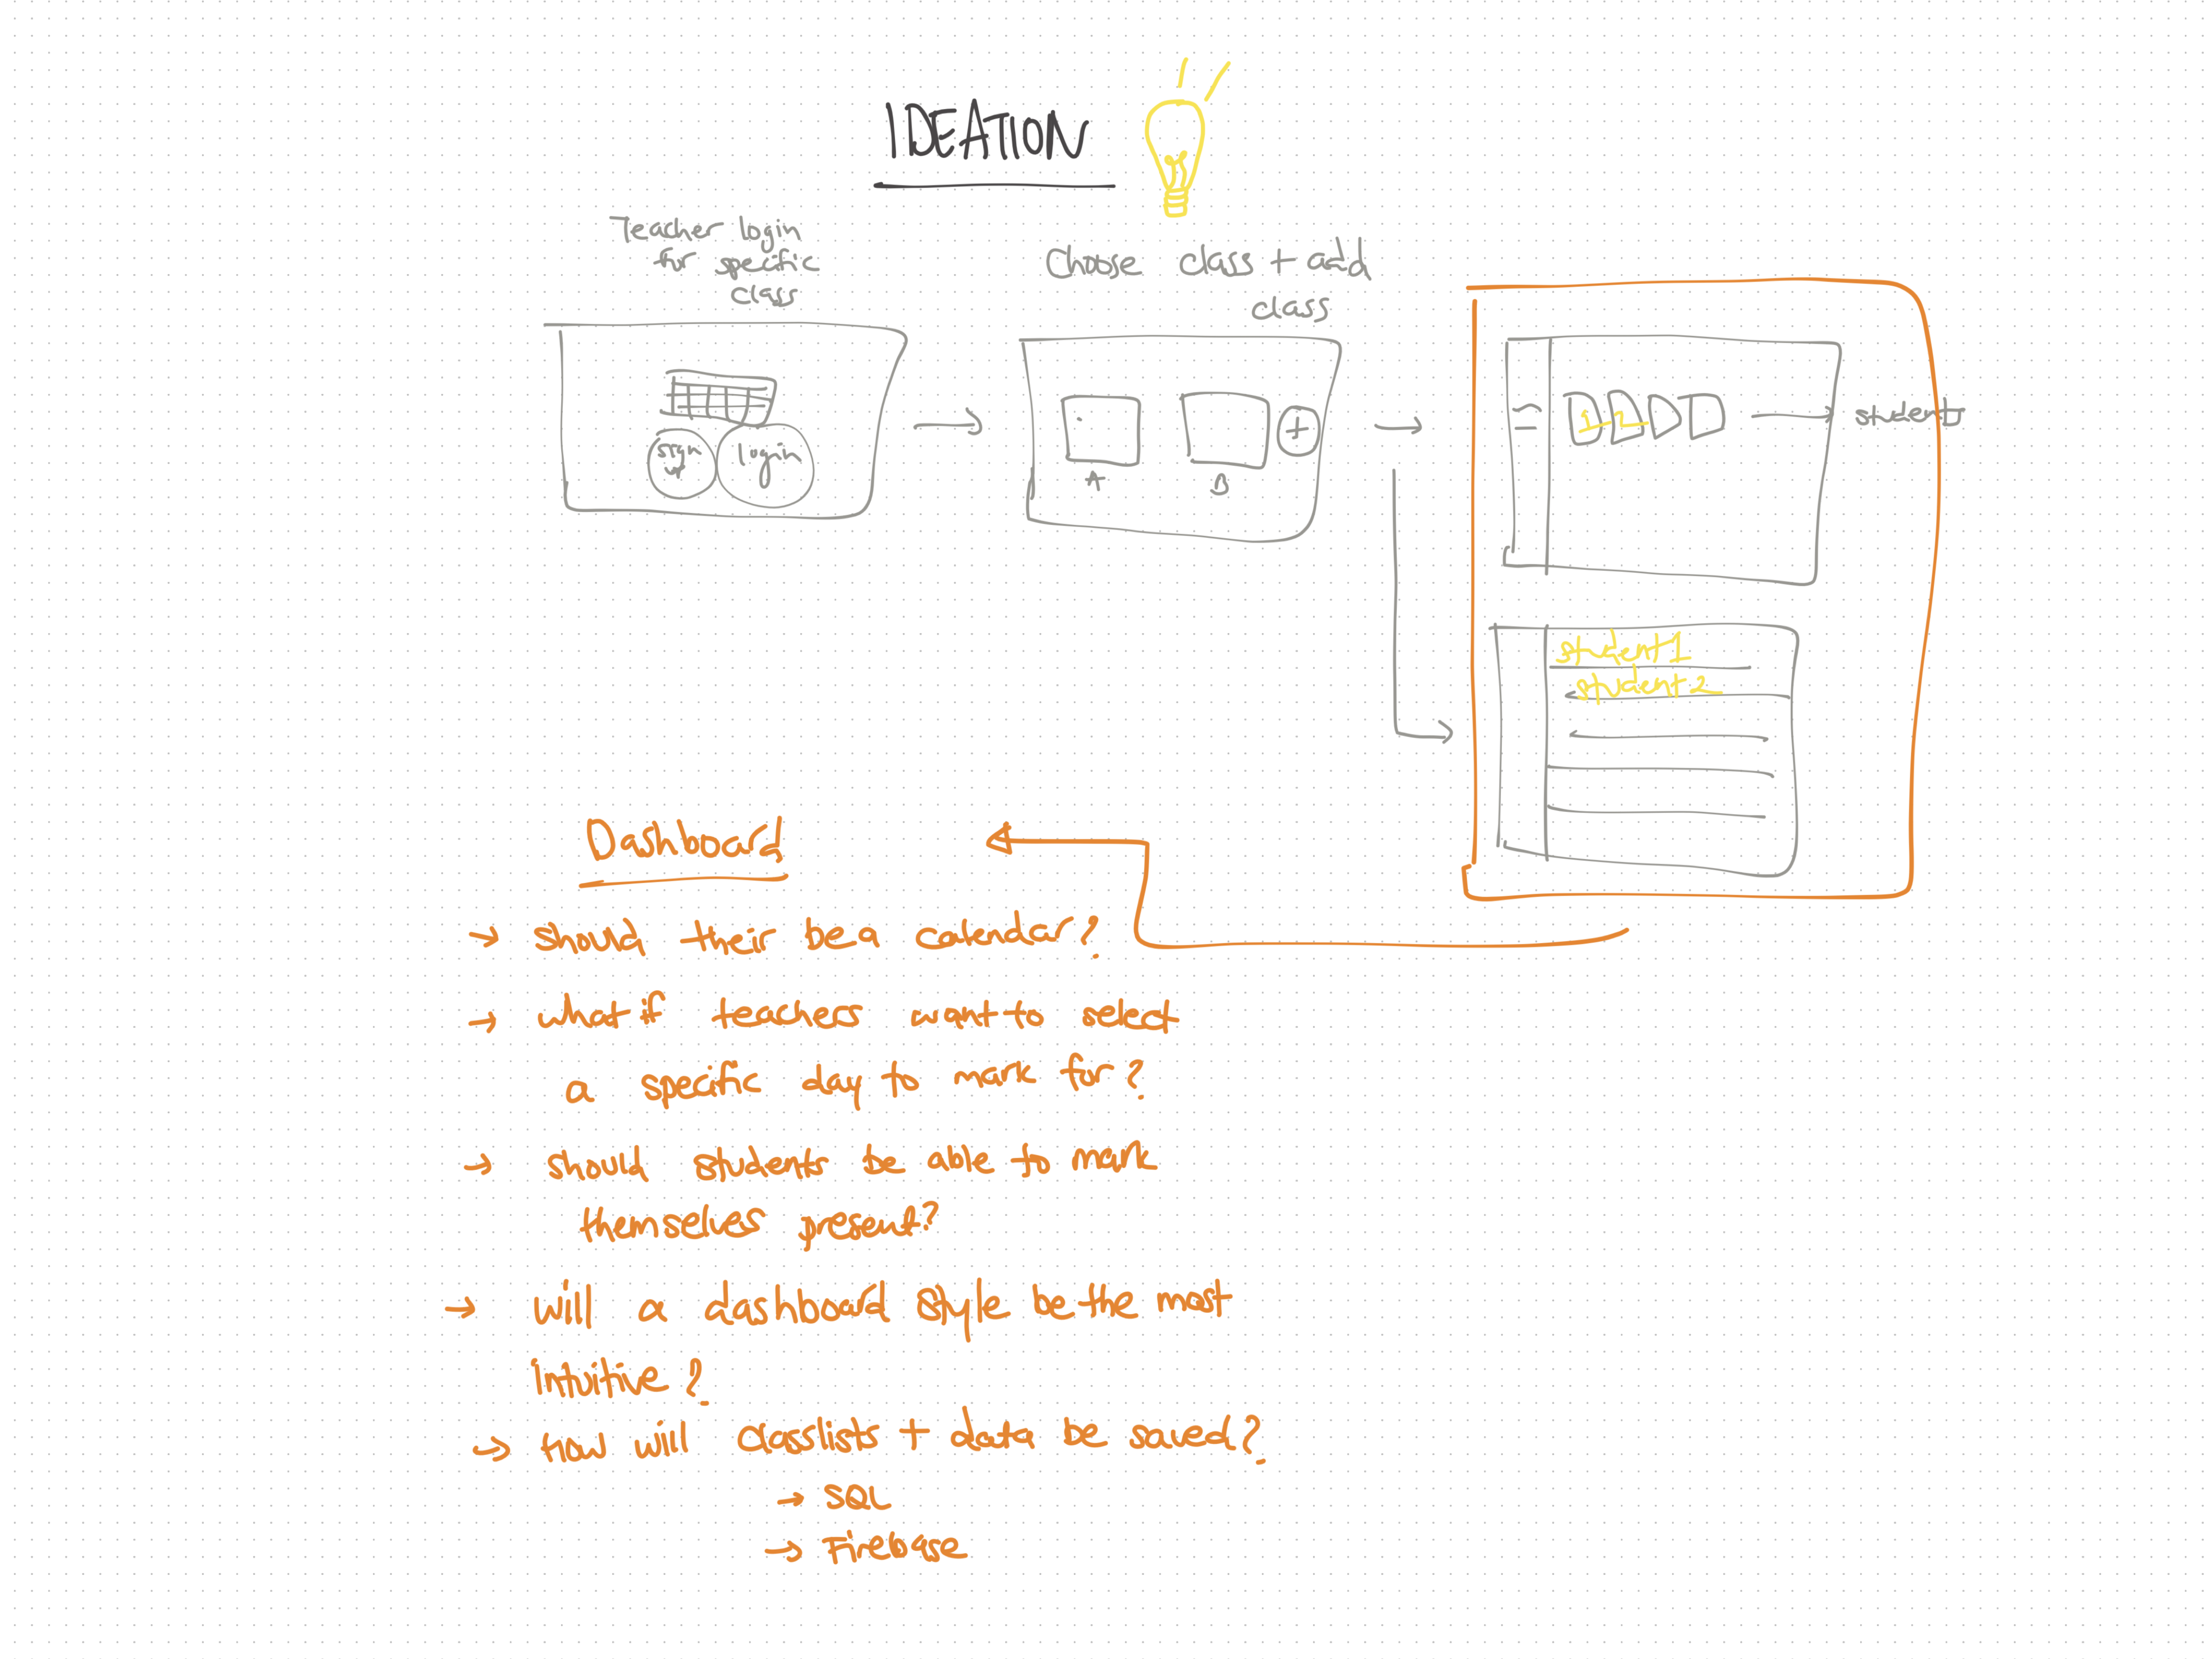 IDEATION
Teacher login
for specific
class
Choose class + add
class
sign
up
login
A
B
1 2
student
student1
student2
Dashboard
→ should their be a calendar?
→ what if teachers want to select
a specific day to mark for?
→ should students be able to mark
themselves present?
→ will a dashboard style be the most
intuitive?
→ How will classlists + data be saved?
→ SQL
→ Firebase